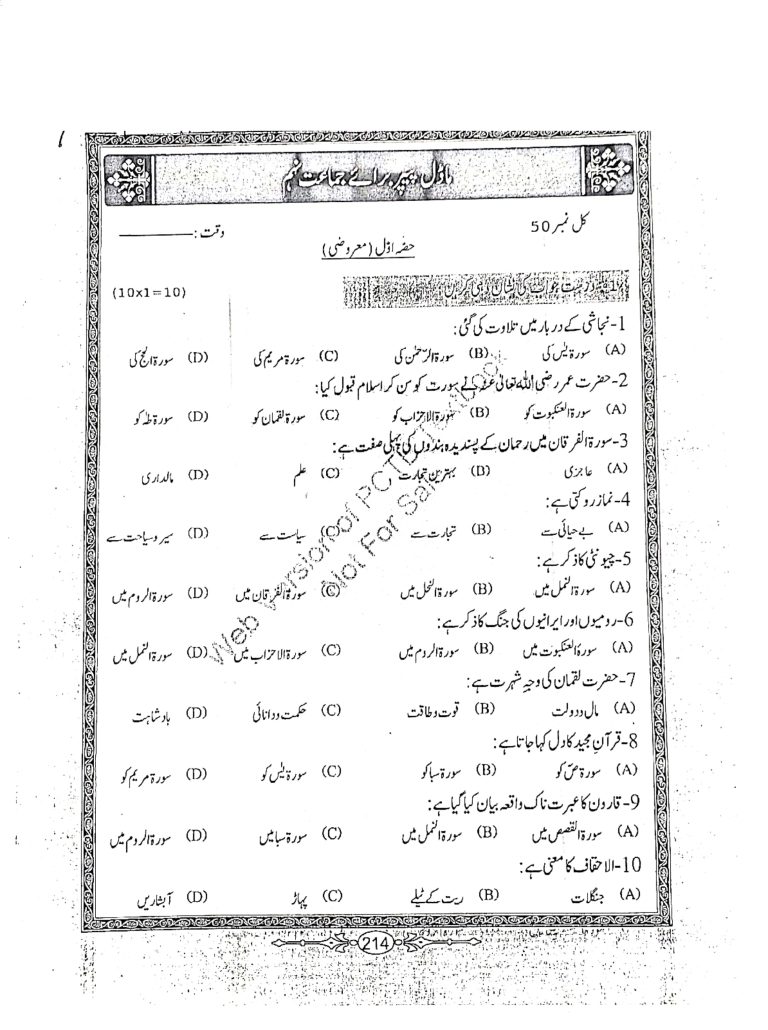 ماڈل پیپر برائے جماعت نہم
کل نمبر 50 وقت: ________
حصّہ اوّل (معروضی)
1: درست جواب کی نشان دہی کریں (10x1=10)
1- نجاشی کے دربار میں تلاوت کی گئی:
(A) سورۃ یٰسٓ کی (B) سورۃ الرّحمٰن کی (C) سورۃ مریم کی (D) سورۃ الحج کی
2- حضرت عمر رضی اللہ تعالیٰ عنہ نے سورت کو سن کر اسلام قبول کیا:
(A) سورۃ العنکبوت کو (B) سورۃ الاحزاب کو (C) سورۃ لقمان کو (D) سورۃ طٰہٰ کو
3- سورۃ الفرقان میں رحمان کے پسندیدہ بندوں کی پہلی صفت ہے:
(A) عاجزی (B) بہترین تجارت (C) علم (D) مالداری
4- نماز روکتی ہے:
(A) بے حیائی سے (B) تجارت سے (C) سیاست سے (D) سیر و سیاحت سے
5- چیونٹی کا ذکر ہے:
(A) سورۃ النمل میں (B) سورۃ النحل میں (C) سورۃ الفرقان میں (D) سورۃ الروم میں
6- رومیوں اور ایرانیوں کی جنگ کا ذکر ہے:
(A) سورۃ العنکبوت میں (B) سورۃ الروم میں (C) سورۃ الاحزاب میں (D) سورۃ النمل میں
7- حضرت لقمان کی وجہِ شہرت ہے:
(A) مال و دولت (B) قوت و طاقت (C) حکمت و دانائی (D) بادشاہت
8- قرآن مجید کا دل کہا جاتا ہے:
(A) سورۃ صٓ کو (B) سورۃ سبا کو (C) سورۃ یٰسٓ کو (D) سورۃ مریم کو
9- قارون کا عبرت ناک واقعہ بیان کیا گیا ہے:
(A) سورۃ القصص میں (B) سورۃ النمل میں (C) سورۃ سبا میں (D) سورۃ الروم میں
10- الاحقاف کا معنی ہے:
(A) جنگلات (B) ریت کے ٹیلے (C) پہاڑ (D) آبشاریں
Web Version of PCTB Textbook
Not For Sale
214